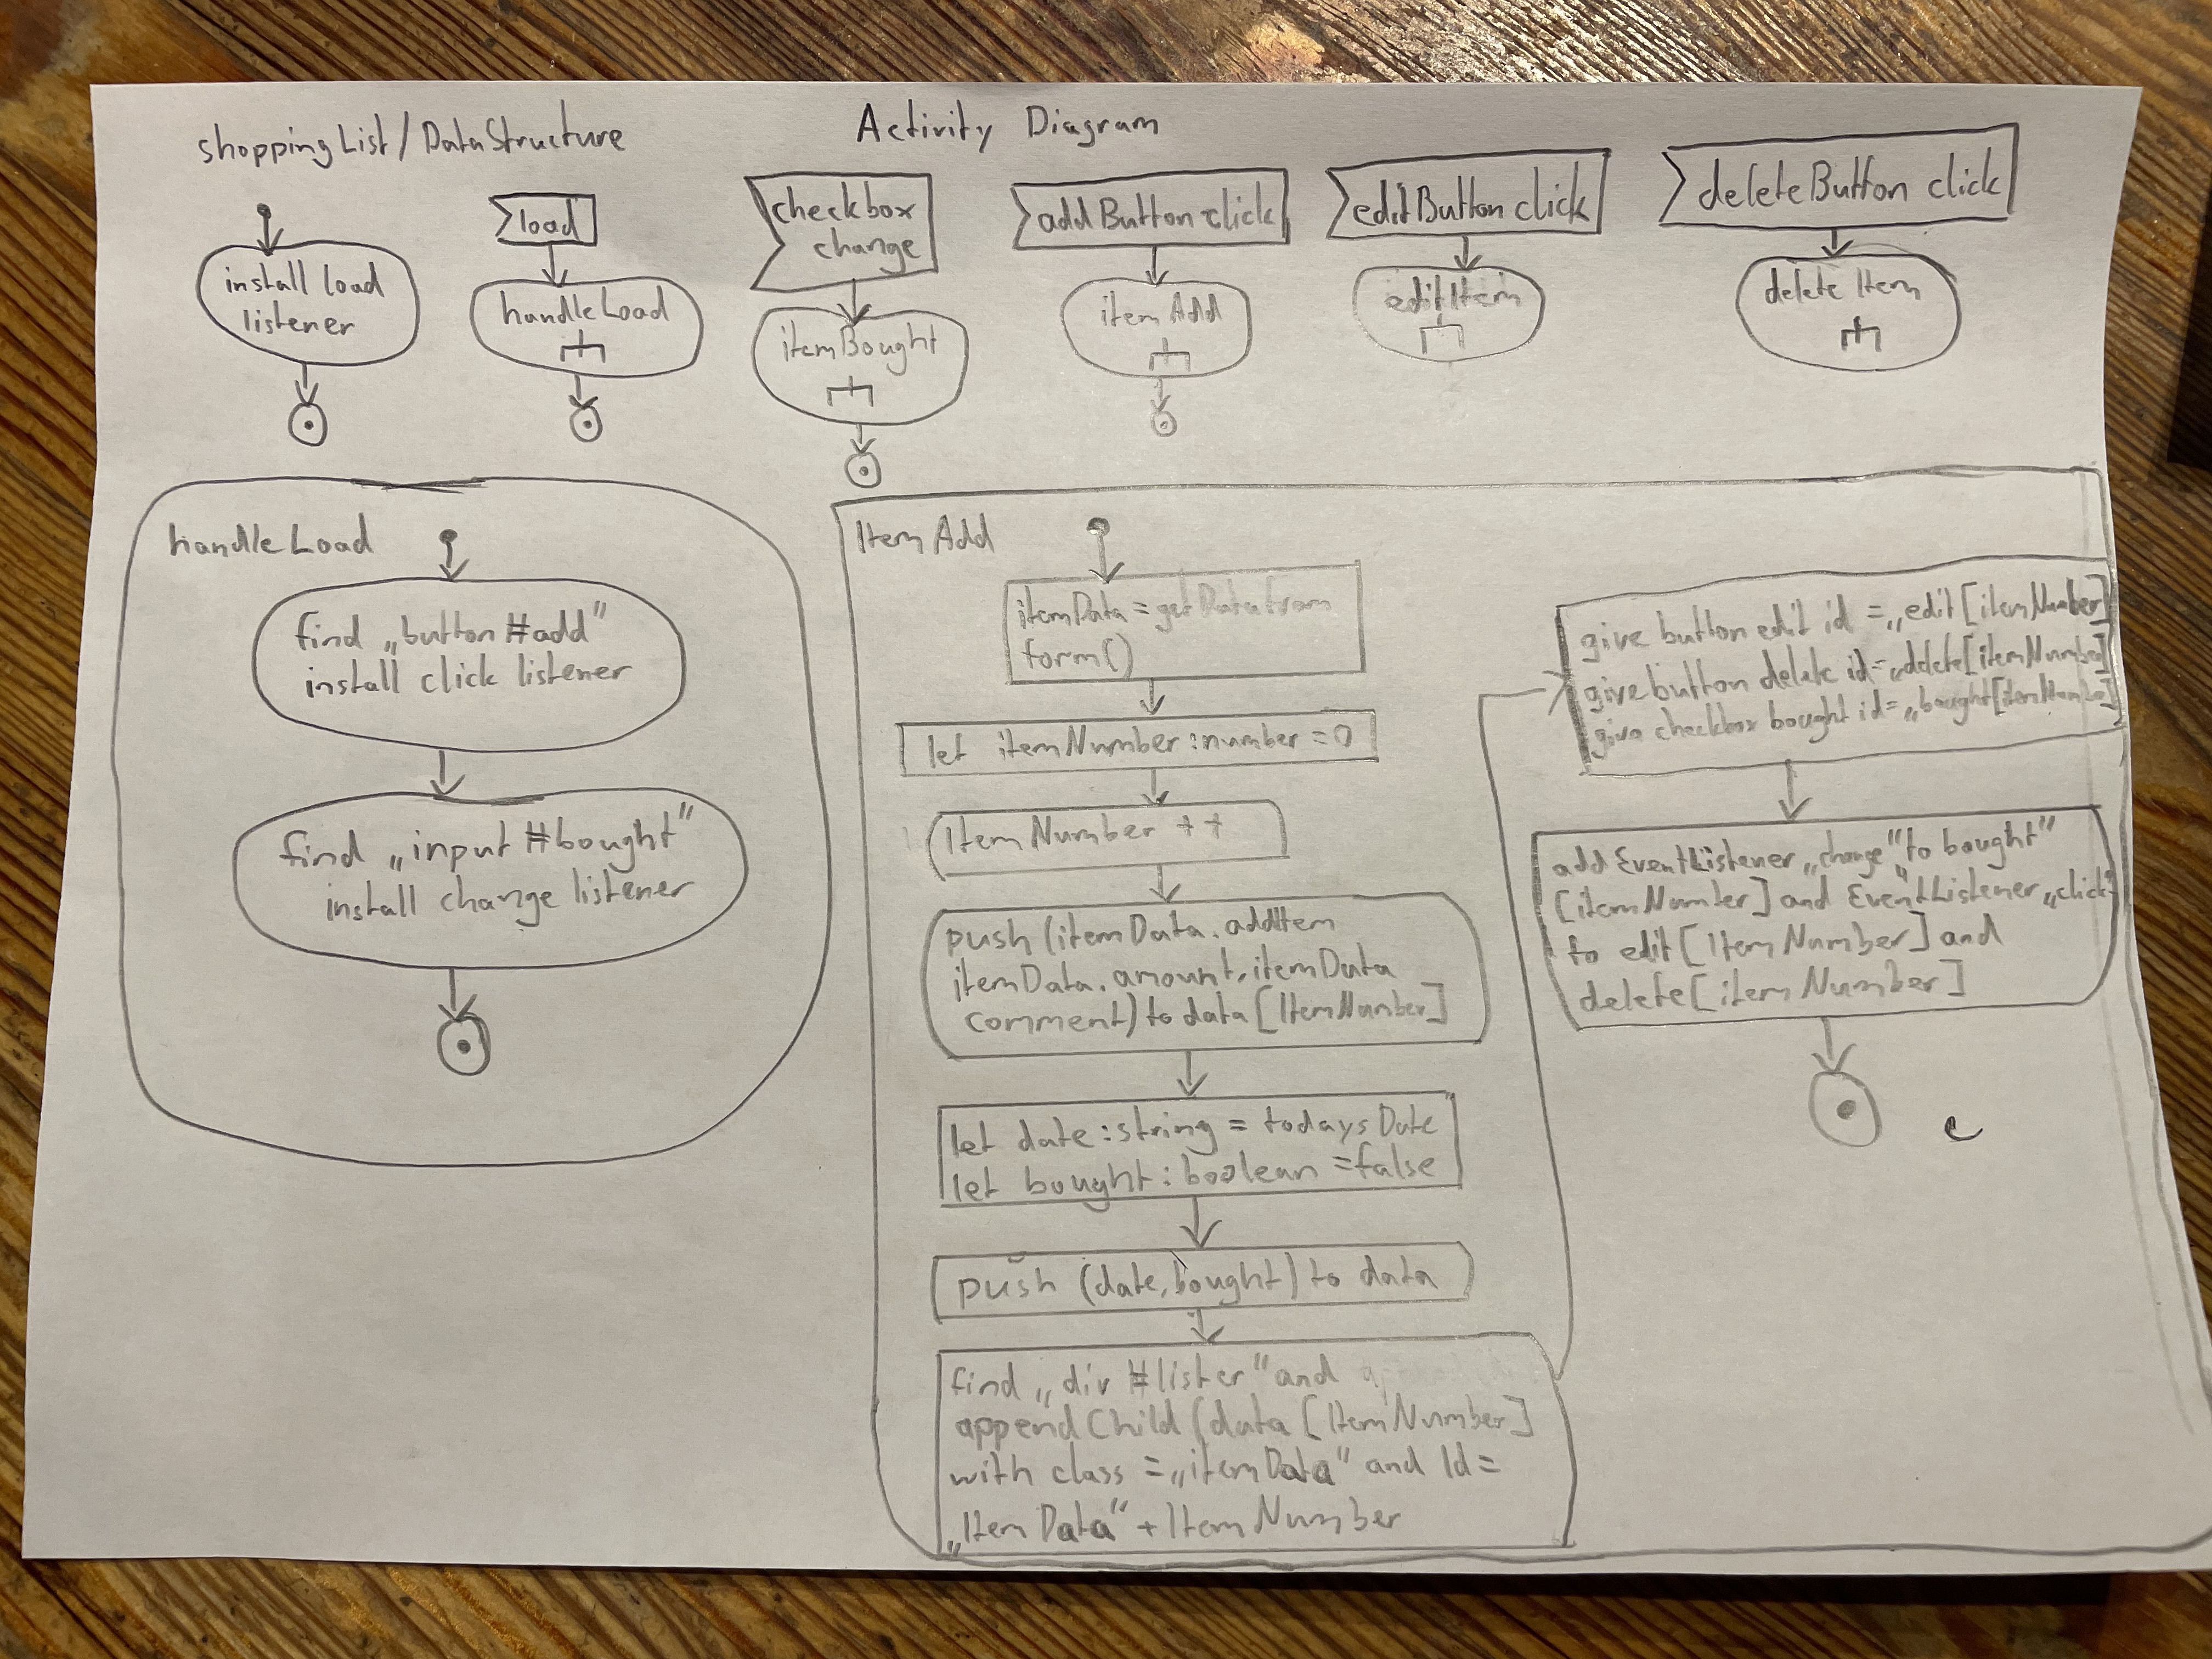 shoppingList/DataStructure Activity Diagram
install load
listener
load
handleLoad
checkbox
change
itemBought
addButton click
itemAdd
editButton click
editItem
deleteButton click
delete Item
handleLoad
find „button#add"
install click listener
find „input#bought"
install change listener
ItemAdd
itemData = getDatafrom
form()
let itemNumber:number=0
ItemNumber ++
push(itemData.addItem
itemData.amount,itemData
Comment) to data[ItemNumber]
let date:string = todaysDate
let bought:boolean =false
push (date,bought) to data
find „div #lister" and
appendChild (data [ItemNumber]
with class = „itemData" and Id =
„ItemData" + ItemNumber
give button edit id = „edit[itemNumber]
give button delete id=„delete[itemNumber]
give checkbox bought id=„bought[itemNumber]
addEventListener „change" to bought"
[itemNumber] and EventListener „click"
to edit[ItemNumber] and
delete[itemNumber]
e